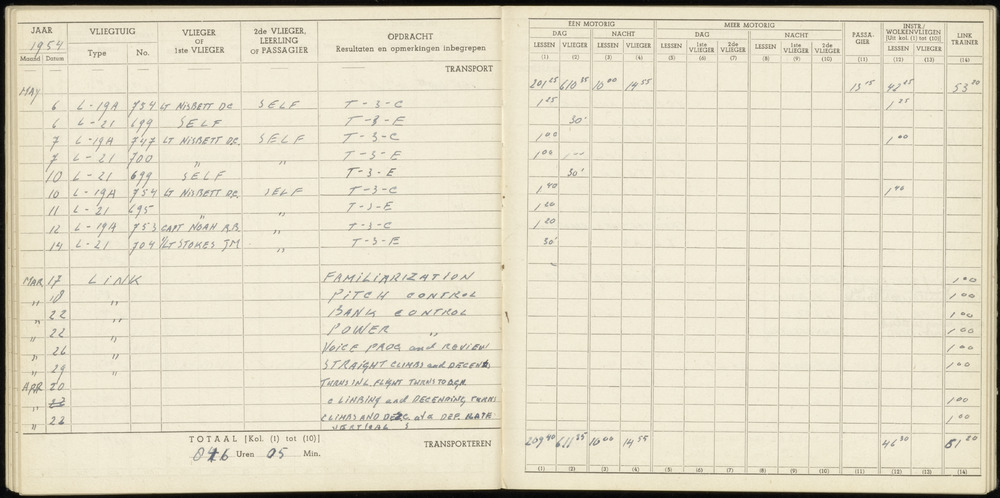 JAAR 1954 VLIEGTUIG VLIEGER OF 1ste VLIEGER 2de VLIEGER, LEERLING OF PASSAGIER OPDRACHT Resultaten en opmerkingen inbegrepen
Maand Datum Type No.
TRANSPORT
MAY
6 L-19A 754 LT NISBETT DC SELF T-3-C
6 L-21 699 SELF T-3-E
7 L-19A 747 LT NISBETT DC. SELF T-3-C
7 L-21 700 " " T-3-E
10 L-21 699 SELF T-3-E
10 L-19A 754 LT NISBETT DC. SELF T-3-C
11 L-21 695 " " T-3-E
12 L-19A 753 CAPT NOAH R.B. " T-3-C
14 L-21 704 1/LT STOKES J.M. " T-3-E
MAR 17 LINK FAMILIARIZATION
" 18 " PITCH CONTROL
" 22 " BANK CONTROL
" 22 " POWER "
" 26 " VOICE PROC and REVIEW
" 29 " STRAIGHT CLIMBS and DECENTS
APR 20 TURNS IN L. FLIGHT TURNS TO
" CLIMBING and DECENDING TURNS
" 22 CLIMBS AND DESC. at a DEF. RATE
VERTICAL S
TOTAAL [Kol. (1) tot (10)] TRANSPORTEREN
Uren 05 Min.
EEN MOTORIG MEER MOTORIG PASSA-GIER INSTR./WOLKENVLIEGEN [Uit kol. (1) tot (10)] LINK TRAINER
DAG NACHT DAG NACHT
LESSEN VLIEGER LESSEN VLIEGER LESSEN 1ste VLIEGER 2de VLIEGER LESSEN 1ste VLIEGER 2de VLIEGER LESSEN VLIEGER
(1) (2) (3) (4) (5) (6) (7) (8) (9) (10) (11) (12) (13) (14)
201 25 610 35 10 00 14 55 13 15 42 25 53 20
1 25 1 25
30'
1 00 1 00
1 00
30'
1 40 1 40
1 20
1 20
30'
1 00
1 00
1 00
1 00
1 00
1 00
1 00
1 00
209 40 611 35 10 00 14 55 46 30 61 20
(1) (2) (3) (4) (5) (6) (7) (8) (9) (10) (11) (12) (13) (14)